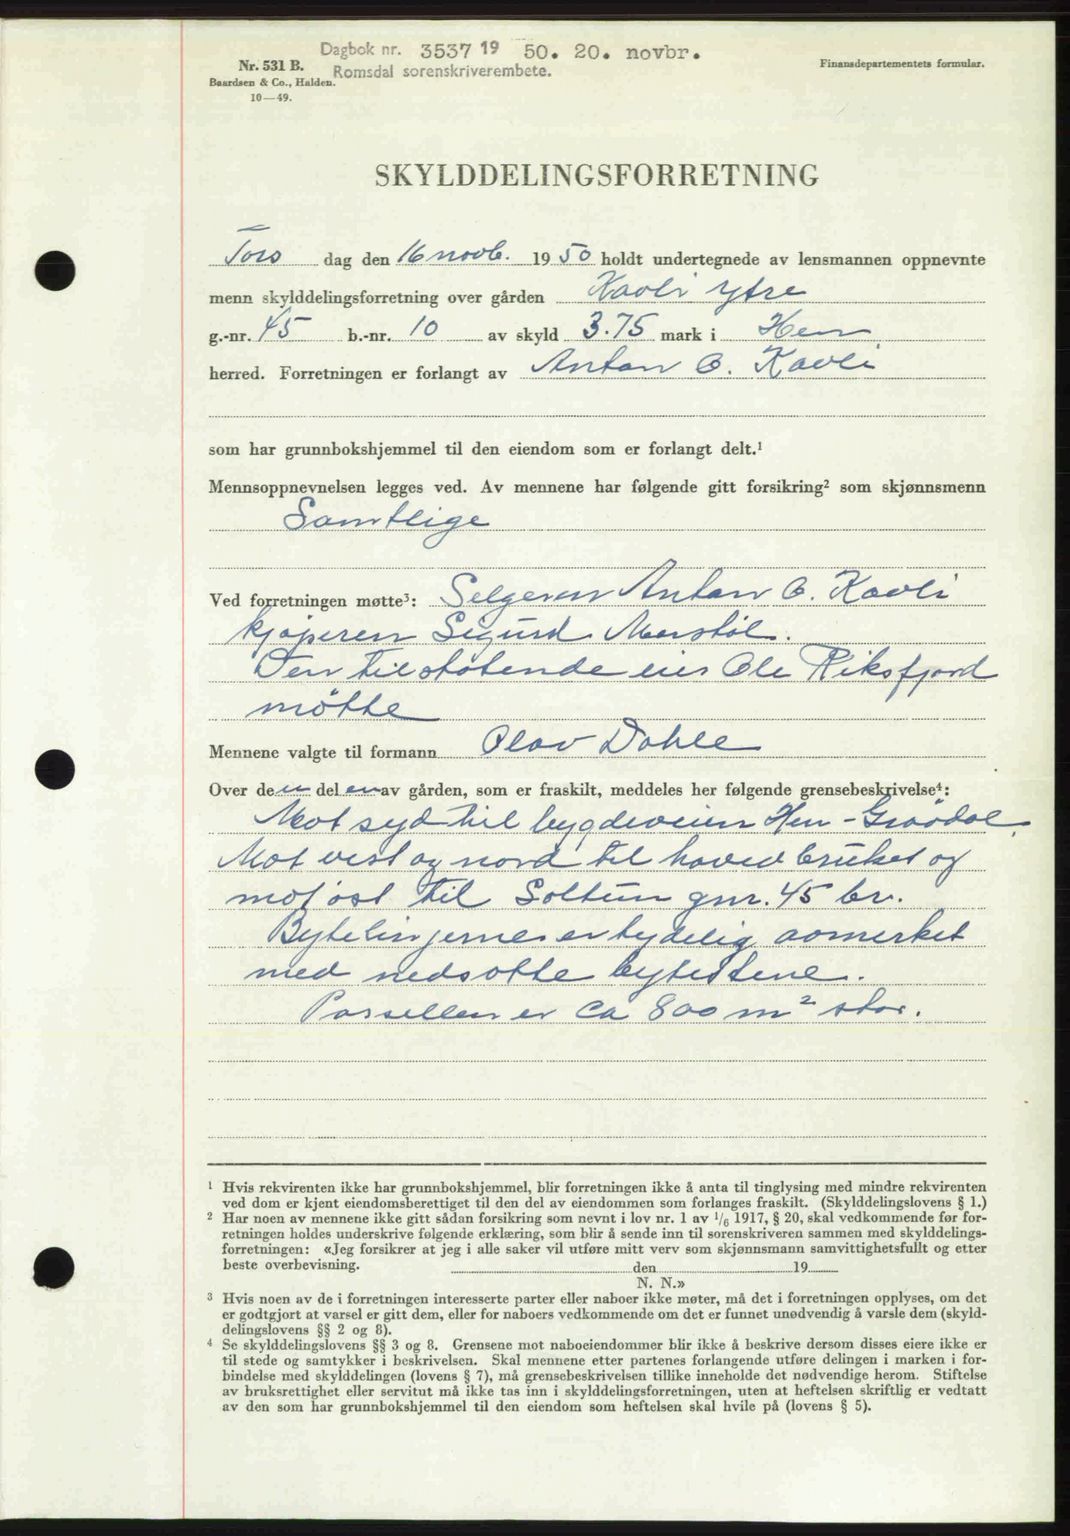 Dagbok nr. 3537 19 50. 20. novbr.
Romsdal sorenskriverembete.
Nr. 531 B.
Baardsen & Co., Halden.
10—49.
Finansdepartementets formular.
SKYLDDELINGSFORRETNING
Tors dag den 16 novb. 19 50 holdt undertegnede av lensmannen oppnevnte
menn skylddelingsforretning over gården Kavli ytre
g.-nr. 45 b.-nr. 10 av skyld 3.75 mark i Hen
herred. Forretningen er forlangt av Anton O. Kavli
som har grunnbokshjemmel til den eiendom som er forlangt delt.¹
Mennsoppnevnelsen legges ved. Av mennene har følgende gitt forsikring² som skjønnsmenn
Samtlige
Ved forretningen møtte³: Selgeren Anton O. Kavli
kjøperen Sigurd Marstøl.
Den tilstøtende eier Ole Riksfjord
møtte
Mennene valgte til formann Olav Dahle
Over den delen av gården, som er fraskilt, meddeles her følgende grensebeskrivelse⁴:
Mot syd til bygdeveien Hen - Grøvdal.
Mot vest og nord til hovedbruket og
mot øst til Soltun gnr. 45 br.
Bytelinjerne er tydelig avmerket
med nedsatte bytestene.
Parsellen er ca 800 m² stor.
¹ Hvis rekvirenten ikke har grunnbokshjemmel, blir forretningen ikke å anta til tinglysing med mindre rekvirenten
ved dom er kjent eiendomsberettiget til den del av eiendommen som forlanges fraskilt. (Skylddelingslovens § 1.)
² Har noen av mennene ikke gitt sådan forsikring som nevnt i lov nr. 1 av 1/6 1917, § 20, skal vedkommende før for-
retningen holdes underskrive følgende erklæring, som blir å sende inn til sorenskriveren sammen med skylddelings-
forretningen: «Jeg forsikrer at jeg i alle saker vil utføre mitt verv som skjønnsmann samvittighetsfullt og etter
beste overbevisning. den 19
N. N.»
³ Hvis noen av de i forretningen interesserte parter eller naboer ikke møter, må det i forretningen opplyses, om det
er godtgjort at varsel er gitt dem, eller for naboers vedkommende om det er funnet unødvendig å varsle dem (skyld-
delingslovens §§ 2 og 8).
⁴ Se skylddelingslovens §§ 3 og 8. Grensene mot naboeiendommer blir ikke å beskrive dersom disses eiere ikke er
til stede og samtykker i beskrivelsen. Skal mennene etter partenes forlangende utføre delingen i marken i for-
bindelse med skylddelingen (lovens § 7), må grensebeskrivelsen tillike inneholde det nødvendige herom. Stiftelse
av bruksrettighet eller servitut må ikke tas inn i skylddelingsforretningen, uten at heftelsen skriftlig er vedtatt
av den som har grunnbokshjemmel til den eiendom som heftelsen skal hvile på (lovens § 5).